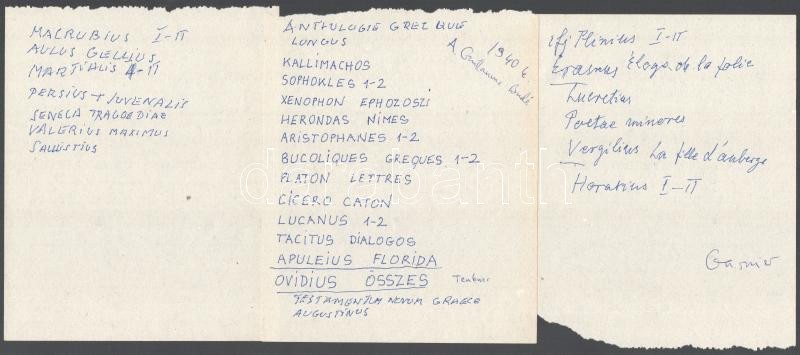 MACROBIUS I-II
AULUS GELLIUS
MARTIALIS I-II
PERSIUS + JUVENALIS
SENECA TRAGOEDIAE
VALERIUS MAXIMUS
SALLUSTIUS
ANTHOLOGIE GRECQUE
LONGUS
KALLIMACHOS
SOPHOKLES 1-2
XENOPHON EPHOZOSZI
HERONDAS NÎMES
ARISTOPHANES 1-2
BUCOLIQUES GREQUES 1-2
PLATON LETTRES
CICERO CATON
LUCANUS 1-2
TACITUS DIALOGOS
APULEIUS FLORIDA
OVIDIUS ÖSSZES Teubner
TESTAMENTUM NOVUM GRAECE
AUGUSTINUS
1940 k.
A Guillaume Budé
ifj Plinius I-II
Erasmus Éloge de la folie
Lucretius
Poetae minores
Vergilius La fille d'auberge
Horatius I-II
Garnier
darabanth